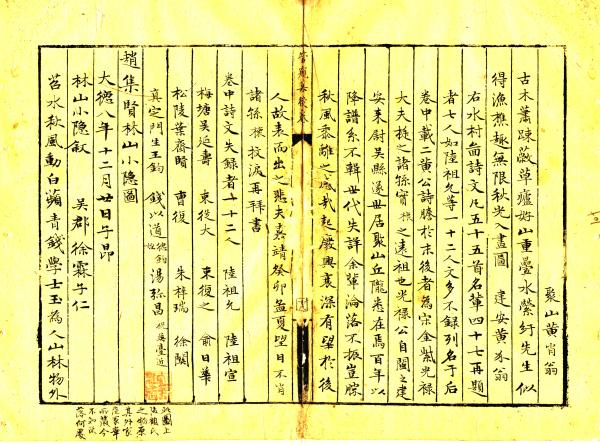 聚山黄肖翁
古木蕭踈蔽草廬好山重疊水縈紆先生似
得漁樵趣無限秋光入畫圖 建安黄 翁
右水村啚詩文凡五十五首名軰四十七再題
者七人如陸祖允等一十二人文多不録列名于后
卷中載二黄公詩牓於末後者為宋金紫光禄
大夫 之諸孫寳 之遠祖也光禄公自閩之建
安来尉吴縣遂世居聚山丘隴悉在焉百年以
降譜系不輯世代失詳余軰淪落不振豈勝
秋風黍離之 哉起廢興衰深有望於後
人故表而出之悲夫嘉靖癸卯孟夏望日不肖
諸孫 抆淚再拜書
卷中詩文失録者一十二人
梅塘吴延壽 東從大 陸祖允 陸祖宣
松陵葉齋賢 曹復 束復之 俞日華
真定門生王鈞 錢以道 朱梓瑞 徐關
湯弥昌
趙集賢林山小隐圖
大德八年十二月廿日子昂
林山小隐叙 吴郡徐霖子仁
苕水秋風動白蘋青錢學士玉為人山林物外